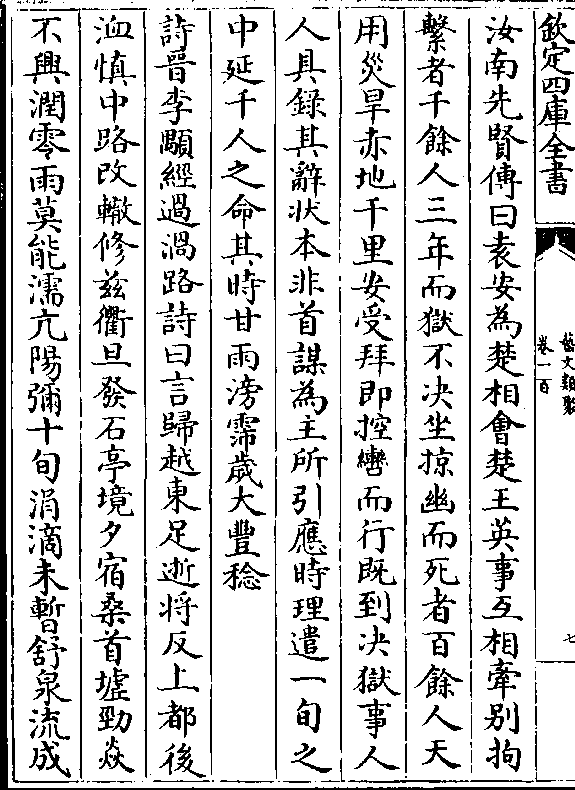 欽定四庫全書
藝文類聚
卷一百
七
汝南先賢傳曰袁安為楚相會楚王英事互相牽别拘
繫者千餘人三年而獄不决坐掠幽而死者百餘人天
用災旱赤地千里安受拜即控轡而行既到决獄事人
人具錄其辭状本非首謀為主所引應時理遣一旬之
中延千人之命其時甘雨滂霈歳大豐稔
詩晉李顒經過渦路詩曰言歸越東足逝将反上都後
洫慎中路改轍修兹衢旦發石亭境夕宿桑首墟勁焱
不興潤零雨莫能濡亢陽彌十旬涓滴未暫舒泉流成